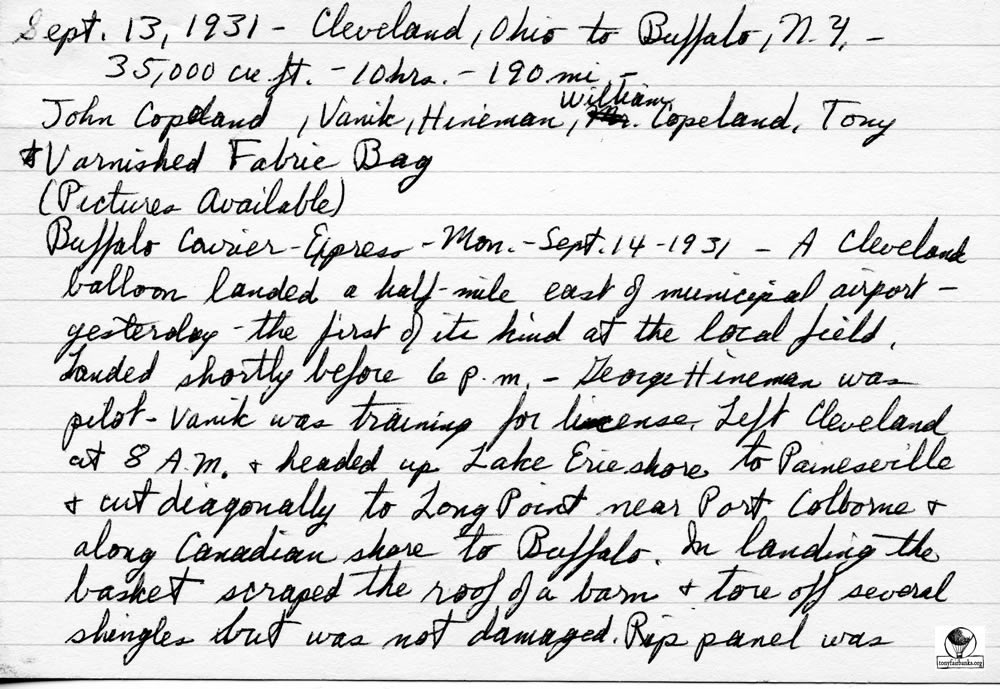 Sept. 13, 1931 - Cleveland, Ohio to Buffalo, N.Y. -
35,000 cu ft. - 10 hrs. - 190 mi -
John Copeland, Vanik, Hineman, William Copeland, Tony
Varnished Fabric Bag
(Pictures Available)
Buffalo Courier-Express - Mon. - Sept. 14 - 1931 - A Cleveland
balloon landed a half-mile east of municipal airport -
yesterday - the first of its kind at the local field.
Landed shortly before 6 p.m. - George Hineman was
pilot - Vanik was training for lincense. Left Cleveland
at 8 A.M. & headed up Lake Erie shore to Painesville
& cut diagonally to Long Point near Port Colborne &
along Canadian shore to Buffalo. In landing the
basket scraped the roof of a barn & tore off several
shingles but was not damaged. Rip panel was
tonyfairbanks.org